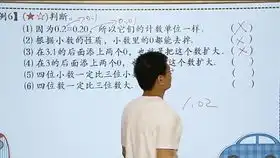 例6】(★☆)判断
(1) 因为0.2=0.20, 所以它们的计数单位一样. (×)
(2) 根据小数的性质, 小数里的0都能去掉. (×)
(3) 在3.1的后面添上两个0, 把这个数扩大. (×)
(4) 在3的后面添上两个0, 把这个数扩大. ( )
(5) 四位小数一定比三位小 ( )
(6) 四位小数一定比三位数大. ( )
1.02